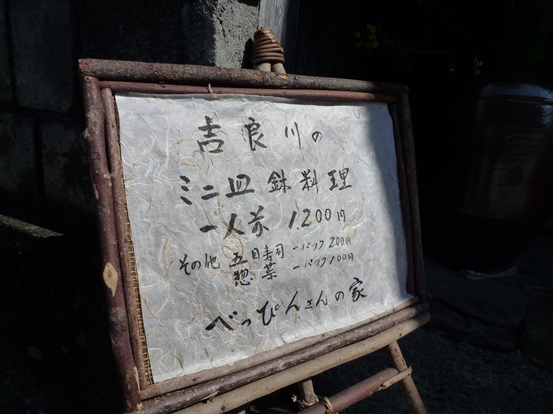 吉良川の
ミニ皿鉢料理
一人前 1,200円
その他 五目寿司 一パック 200円
惣菜 一パック 100円
べっぴんさんの家